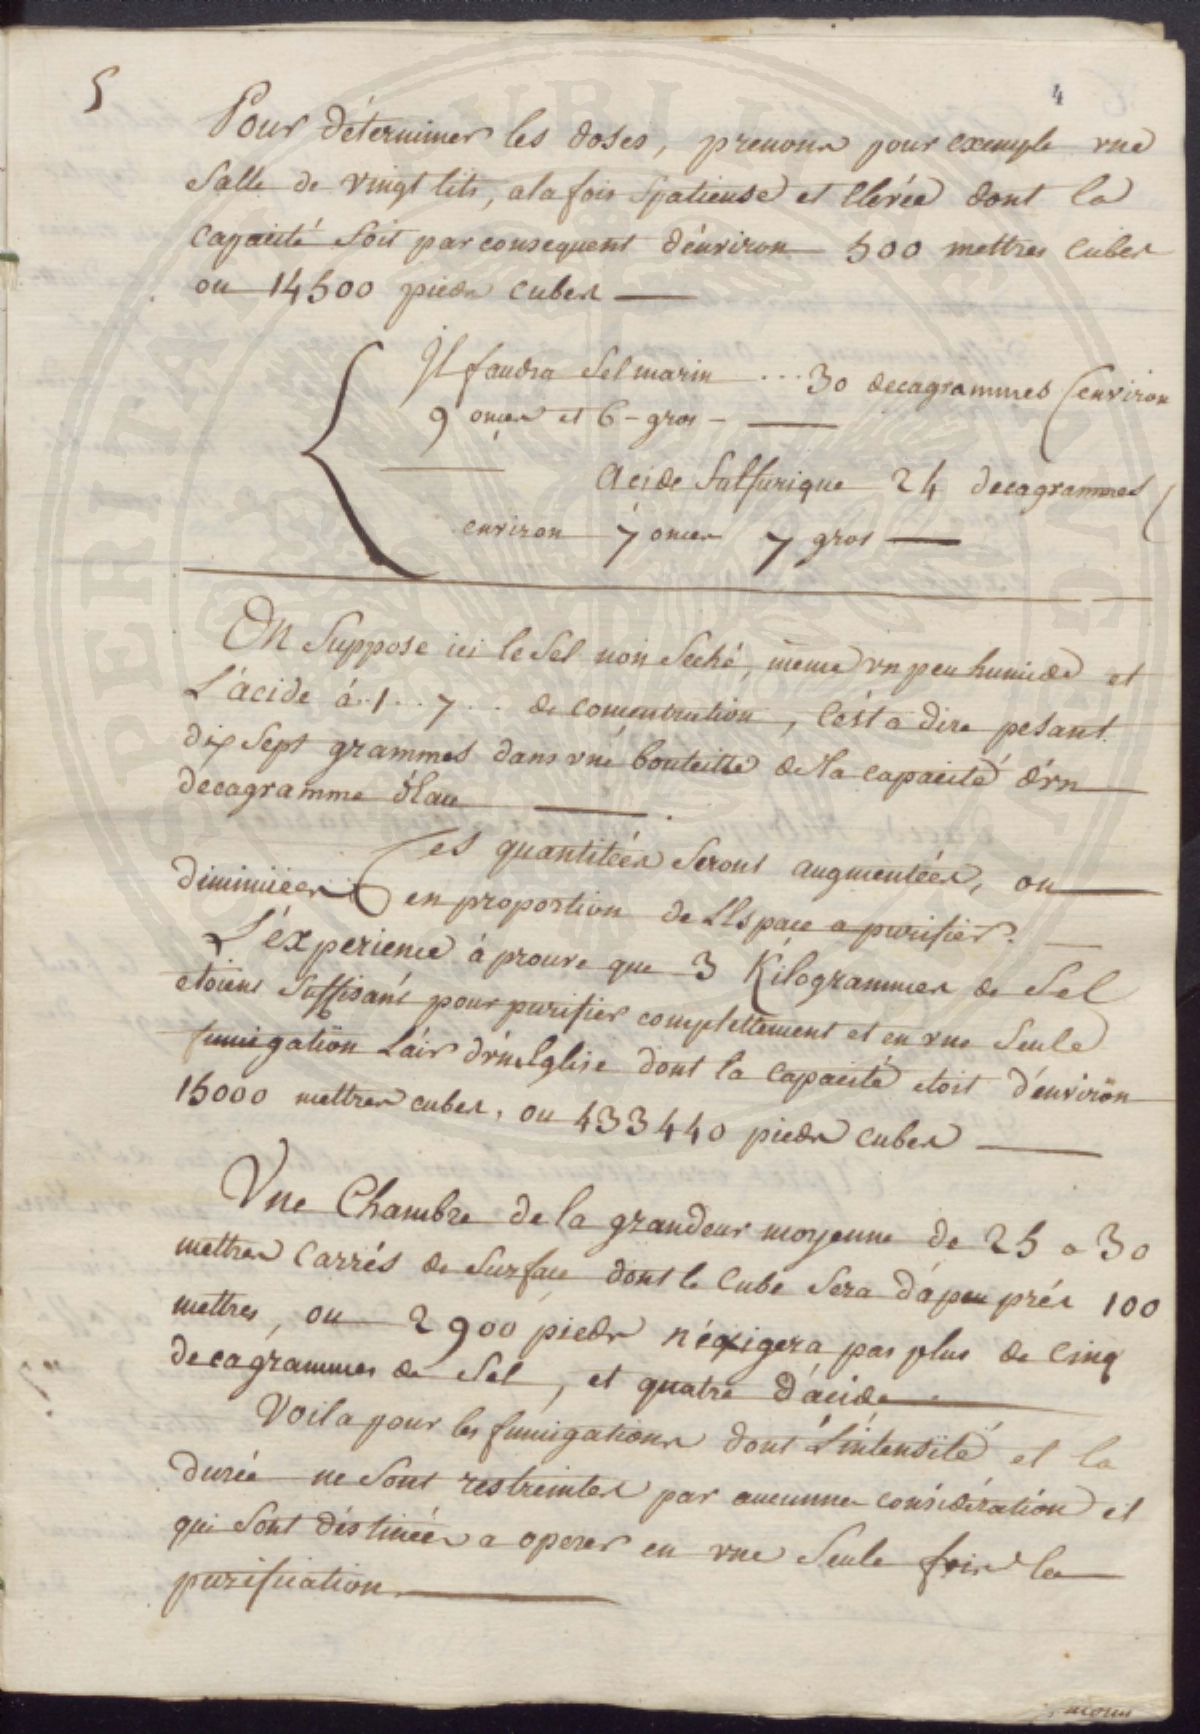 5
4
Pour déterminer les doses, prenons pour exemple vne
Salle de vingt lits, ala fois Spatieuse et Elevée dont la
capacité Soit par consequent d'environ 500 mettres Cubes
ou 14500 pieds cubes
Il faudra Sel marin ... 30 decagrammes (environ
9 onces et 6 - gros -
Acide Sulfurique 24 decagrammes (
environ 7 onces 7 gros
On Suppose ici le Sel non Seché, même vn peu humide et
L'acide á .. 1 .. 7 .. de concentration, C'est a dire pesant
dix Sept grammes dans vne bouteille de la capacité d'vn
decagramme d'Eau
Ces quantitées Seront augmentées, ou
diminuées en proportion de L'Espace a purifier.
L'éxperience à prouvé que 3 Kilogrammes de Sel
etoient Suffisans pour purifier complettement et en vne Seule
fumigation L'air d'vne Eglise dont la Capacité etoit d'environ
15000 mettres cubes, ou 433440 pieds cubes
Vne Chambre de la grandeur moyenne de 25 a 30
mettres Carrés de Surface dont le Cube Sera d'apeu prés 100
mettres, ou 2900 pieds n'éxigera pas plus de Cinq
decagrammes de Sel, et quatre D'acide
Voila pour les fumigations dont L'intensité et la
durée ne Sont restreintes par aucunne considération et
qui Sont déstinées a operer en vne Seule fois la
purification